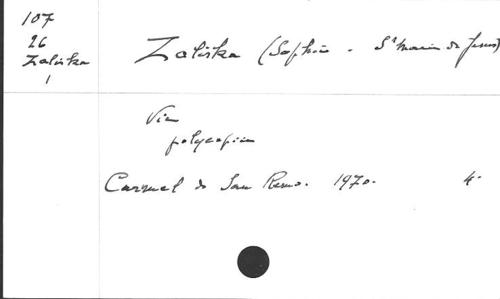 107
26
Zaliska
1
Zaliska (Sophie - Sr Marie de Jésus)
Vie
polycopiée
Carmel de San Remo. 1970. 4°